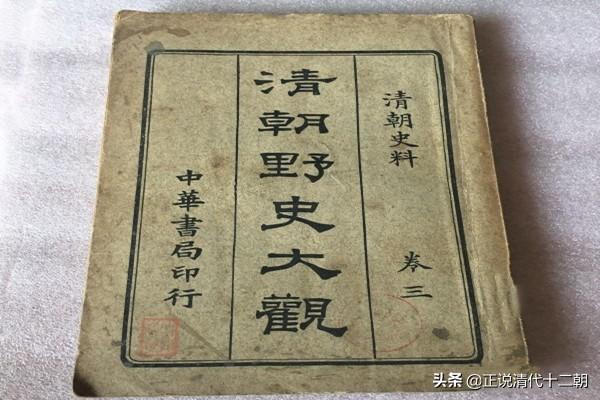 清朝史料 卷三
清朝野史大觀
中華書局印行
头条 @正说清代十二朝